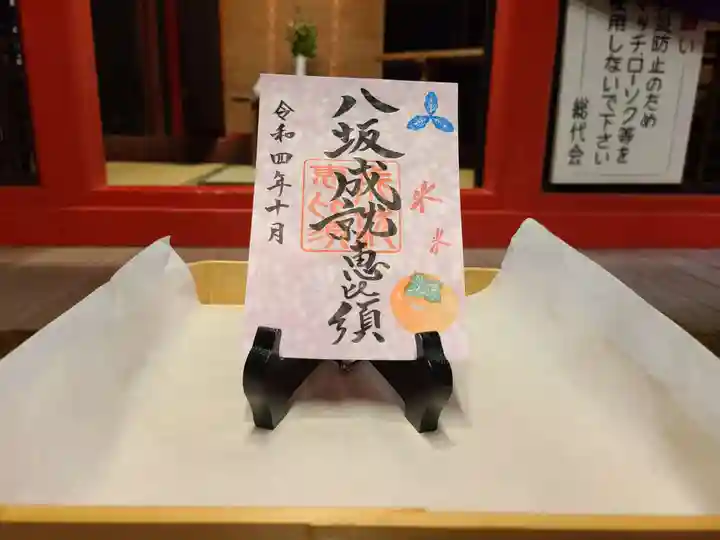 八坂成就恵比須
令和四年十月
防止のため
マッチ.ローソク等を
使用しないで下さい
総代会